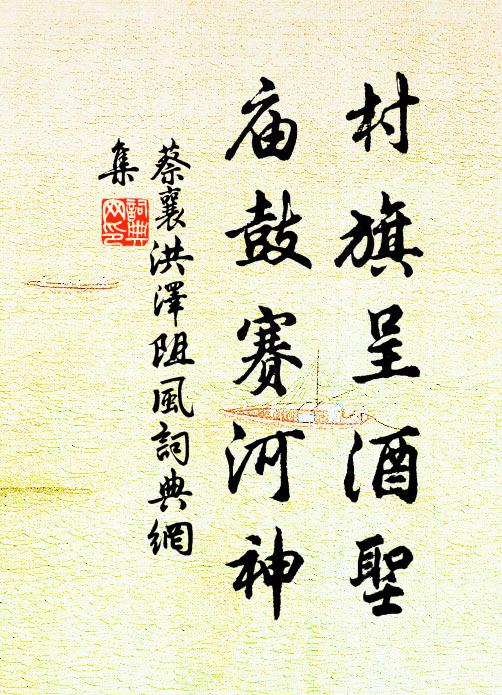 村旗呈酒聖
庙鼓赛河神
蔡襄洪澤阻風詞典網
集
詞典
网印